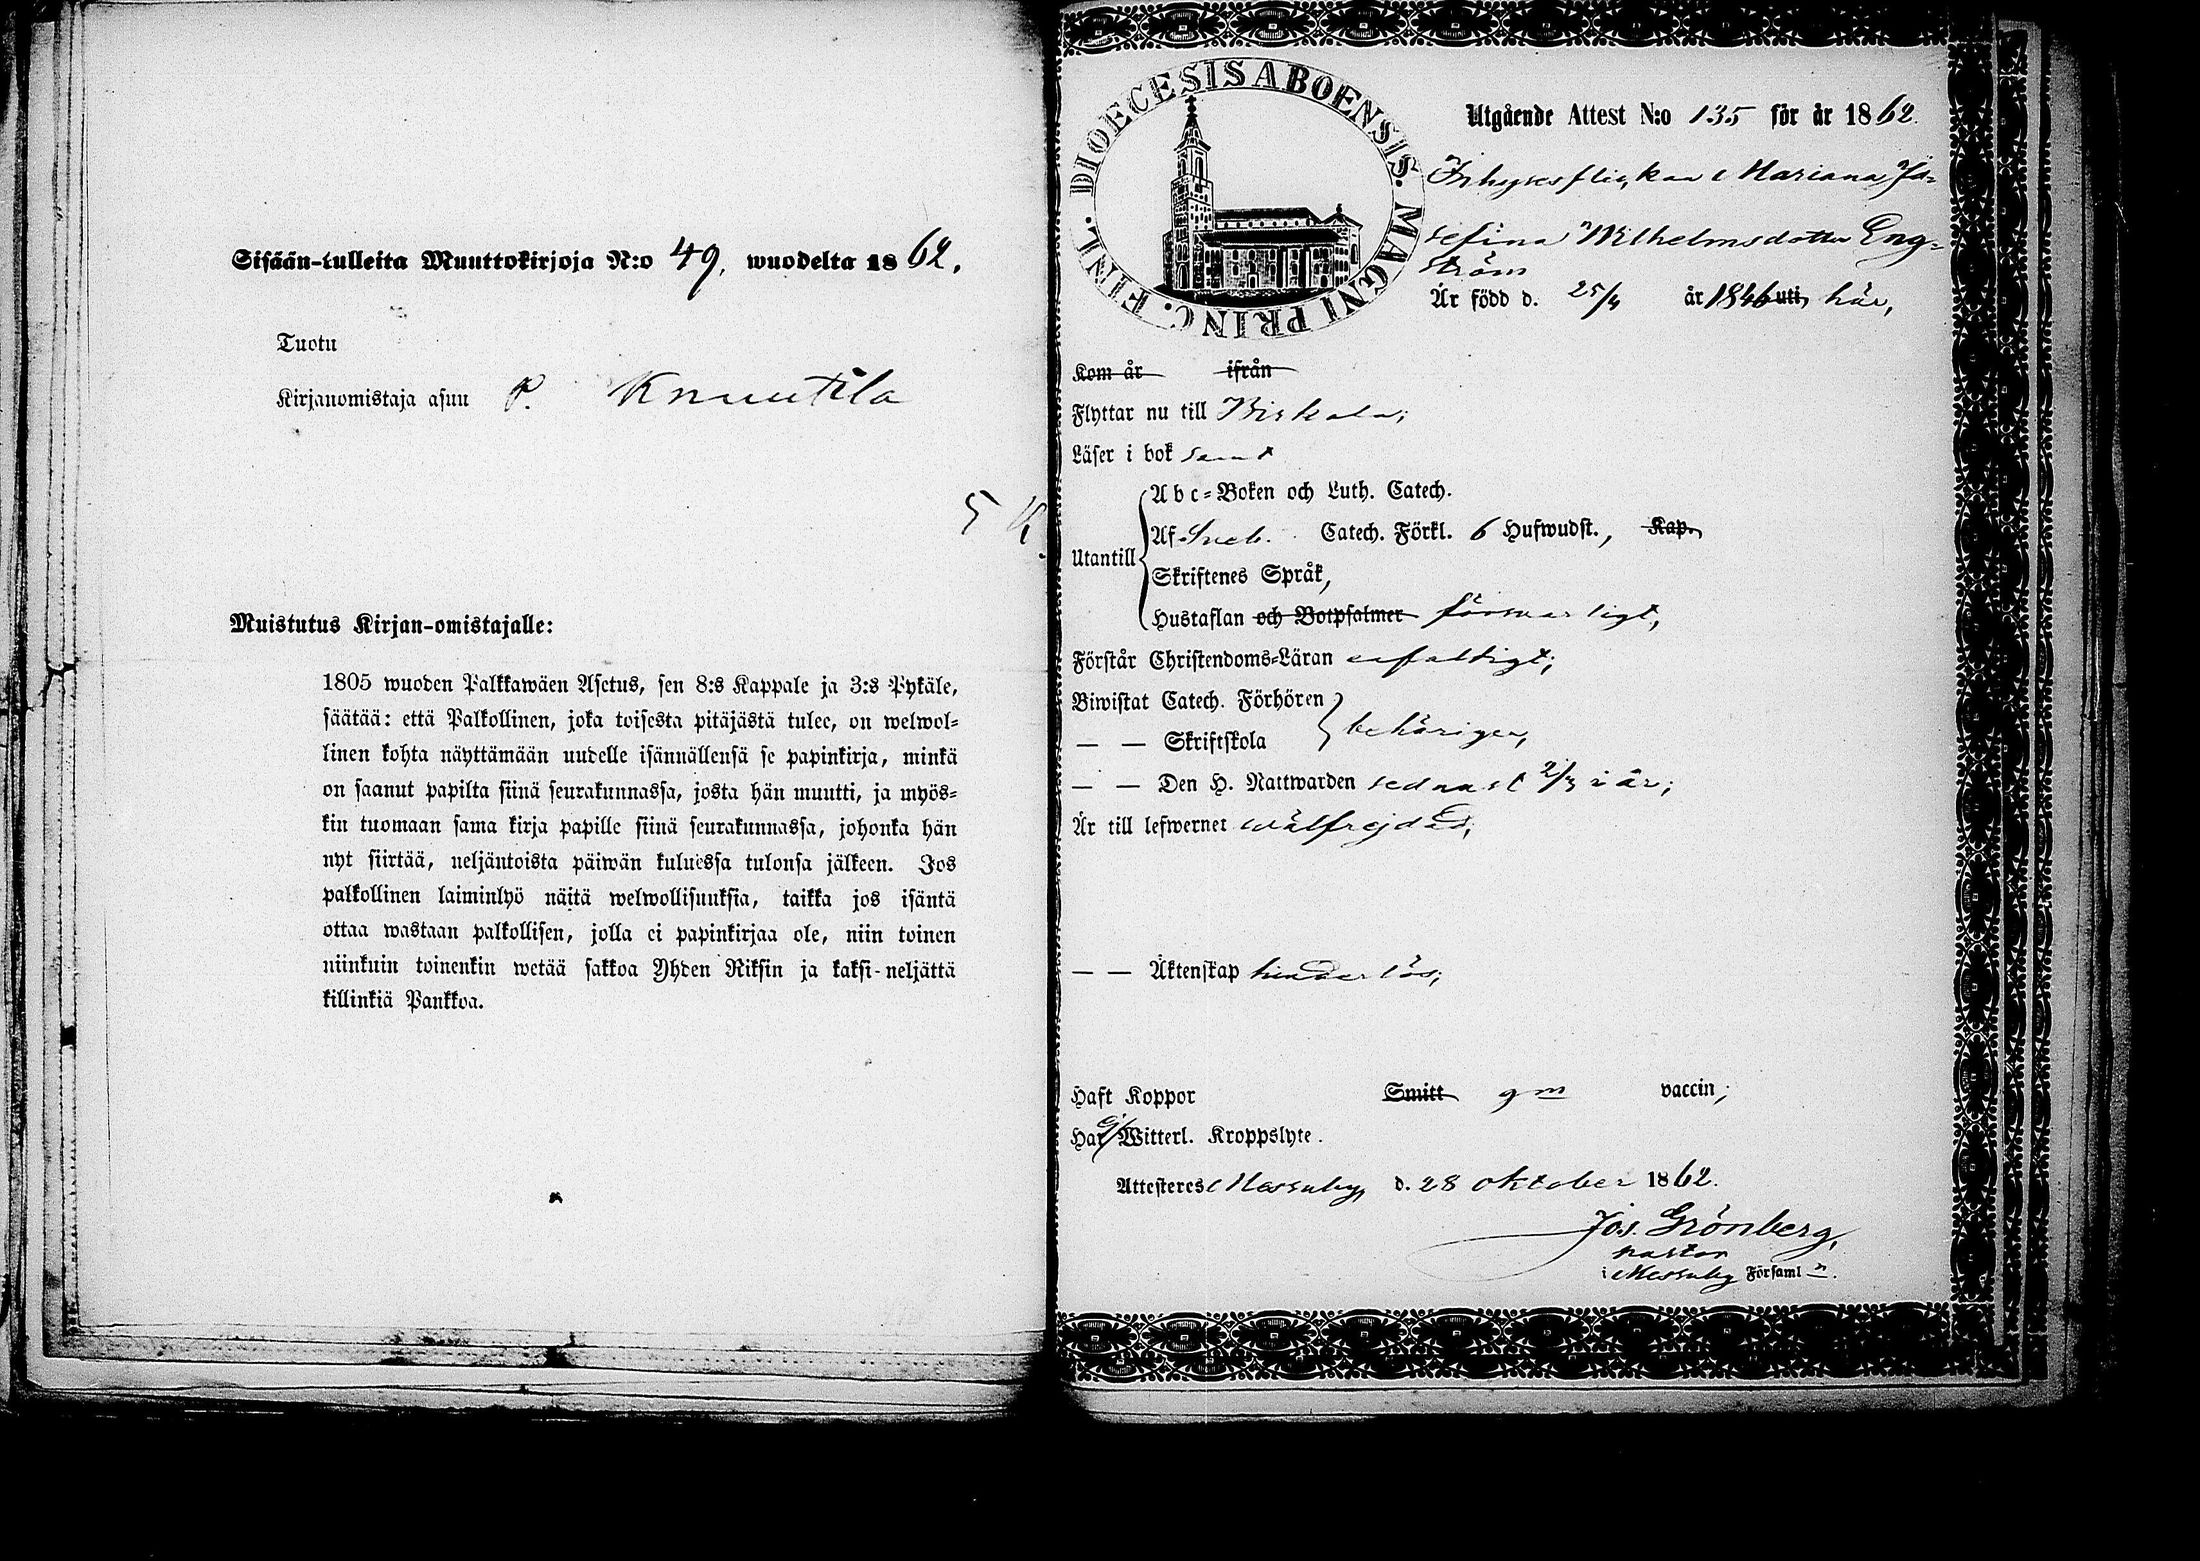 Sisään-tulleita Muuttokirjoja N:o 49. wuodelta 1862.
Tuotu
Kirjanomistaja asuu P. Knuutila
5 K.
Muistutus Kirjan-omistajalle:
1805 wuoden Palkkawäen Asetus, sen 8:s Kappale ja 3:s Pykäle,
säätää: että Palkollinen, joka toisesta pitäjästä tulee, on welwol-
linen kohta näyttämään uudelle isännällensä se papinkirja, minkä
on saanut papilta siinä seurakunnassa, josta hän muutti, ja myös-
kin tuomaan sama kirja papille siinä seurakunnassa, johonka hän
nyt siirtää, neljäntoista päiwän kuluessa tulonsa jälkeen. Jos
palkollinen laiminlyö näitä welwollisuuksia, taikka jos isäntä
ottaa wastaan palkollisen, jolla ei papinkirjaa ole, niin toinen
niinkuin toinenkin wetää sakkoa Yhden Riksin ja kaksi-neljättä
killinkiä Pankkoa.
DIOECESIS ABOENSIS. MAGNI PRINC. FINL.
Utgående Attest N:o 135 för år 1862.
Inhysesflickan Mariana Jo-
sefina Wilhelmsdotter Eng-
ström
Är född d. 25/4 år 1846 uti här,
Kom år ifrån
Flyttar nu till Birkala;
Läser i bok samt
Utantill
Abc-Boken och Luth. Catech.
Af Sveb. Catech. Förkl. 6 Hufwudst., Kap.
Skriftenes Språk,
Hustaflan och Botpsalmer försvarligt,
Förstår Christendoms-Läran enfaldigt;
Biwistat Catech. Förhören
— — Skriftskola behörigen,
— — Den H. Nattwarden sednast 2/3 i år;
Är till lefwernet wälfrejdad;
— — Äktenskap hinderlös;
Haft Koppor Smitt gm vaccin;
Har ej Witterl. Kroppslyte.
Attesteres Messuby d. 28 oktober 1862.
Jos. Grönberg,
pastor
i Messuby Församl n.